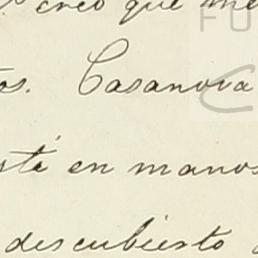 creo que me
os. Casanova
stá en manos
descubierto